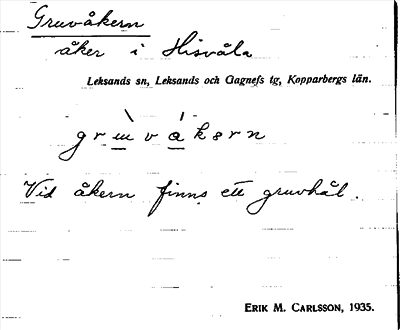 Gruvåkern
åker i Hisvåla
Leksands sn, Leksands och Gagnefs tg, Kopparbergs län.
gru̲va̲kərn
Vid åkern finns ett gruvhål.
ERIK M. CARLSSON, 1935.